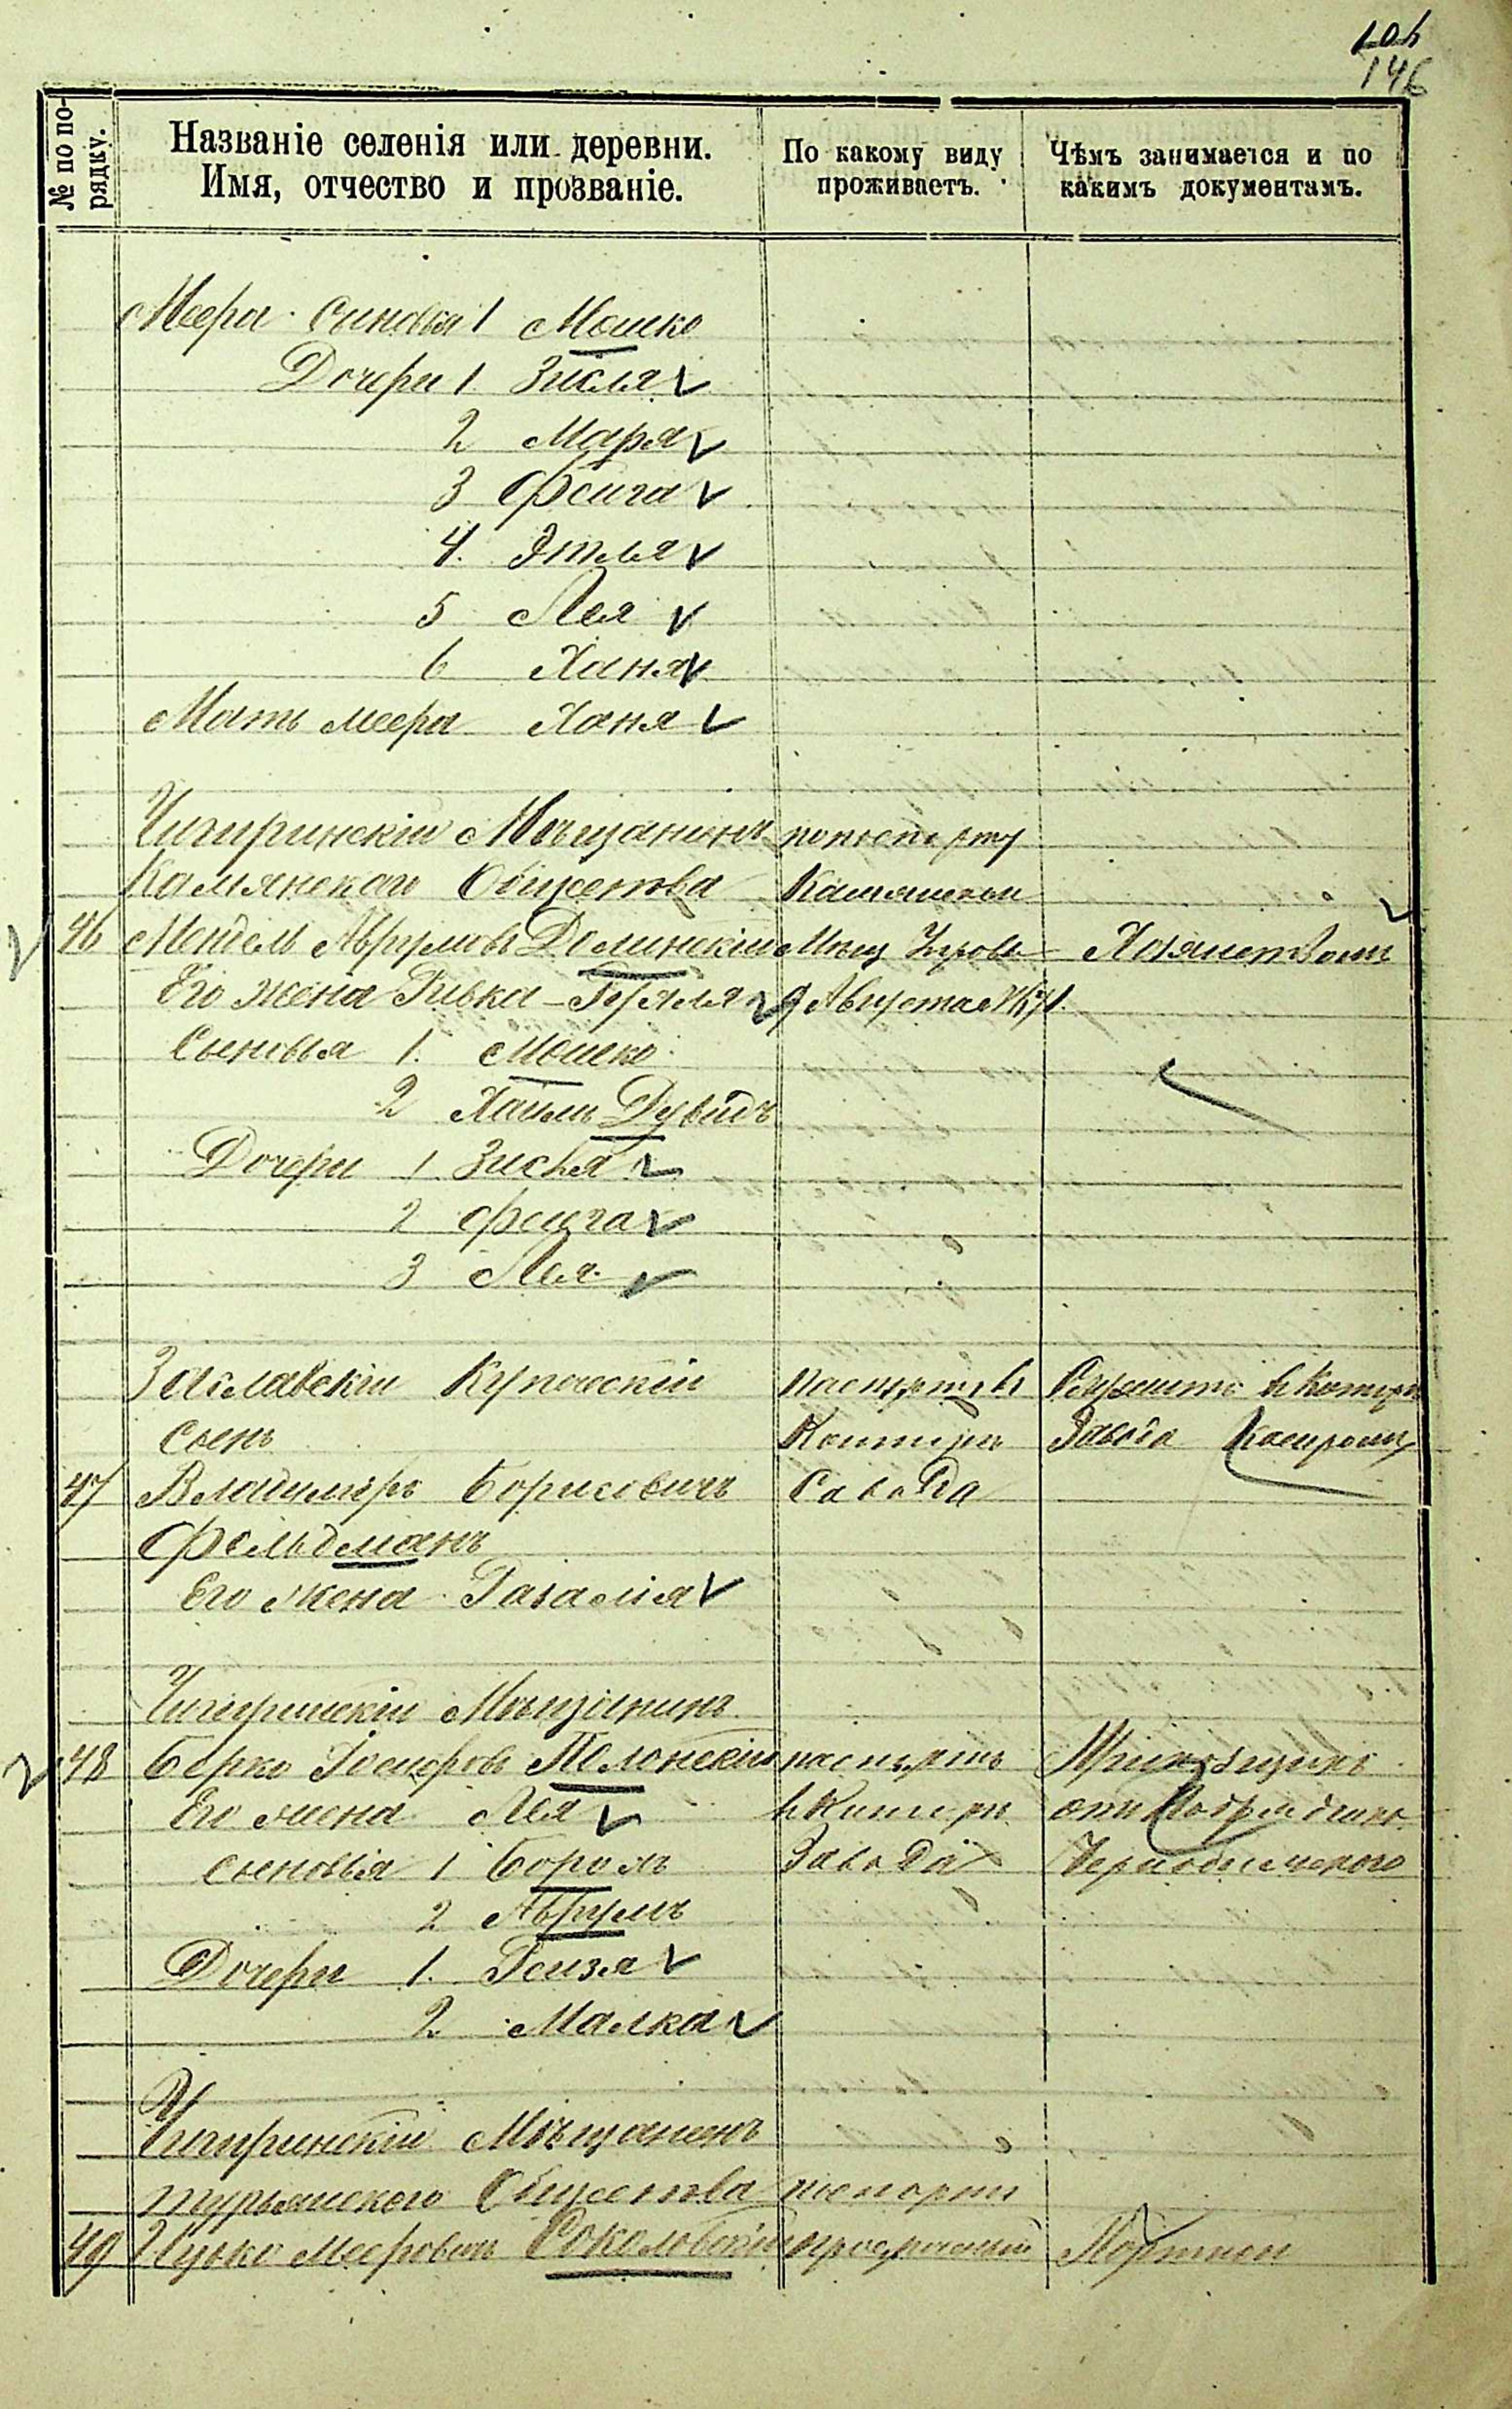 146
№ по по-
рядку.
Названіе селенія или деревни.
Имя, отчество и прозваніе.
По какому виду
проживаетъ.
Чѣмъ занимается и по
какимъ документамъ.
Меера Сыновья 1 Мошко
Дочери 1. Зисля
2 Маря
3 Фейга
4. Этля
5 Лея
6 Ханя
Мать Меера Ханя
Чигиринскій Мѣщанинъ по паспорту
Камянскаго Общества
46 Мендель Аврумовъ Долинскій Мѣщ
Его жена Ривка 9 Августа
Сыновья 1. Мошко
2 Хаимъ Дувидъ
Дочери 1 Зисля
2 Фейга
3 Лея
Заславскій Купеческій паспортъ в
Сынъ Завода
47 Владиміръ Борисовичъ Завода
Фельдманъ
Его жена Разалія
Чигиринскій Мѣщанинъ
48 Берко Іосифовъ Полонскій паспортъ
Его жена Лея
Сыновья 1 Борохъ Завода
2 Аврумъ
Дочери 1. Рейзя
2. Малка
Чигиринскій Мѣщанинъ
Общества паспорт
49 Ицько Мееровичъ Соколовскій Портной